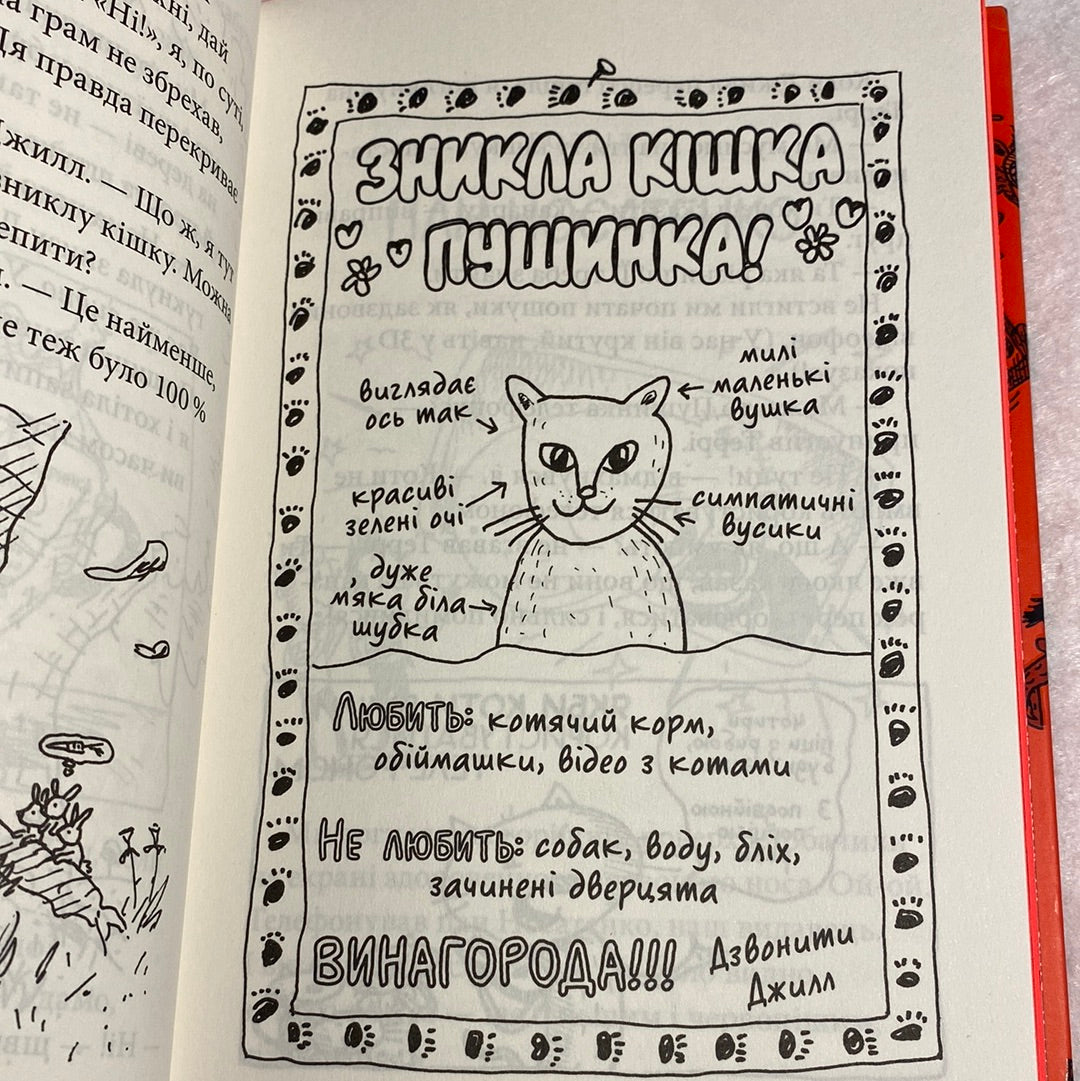 жні, дай
«Ні!», я, по суті,
на грам не збрехав,
Ця правда перекриває
Джилл. — Що ж, я тут
зниклу кішку. Можна
епити?
— Це найменше,
теж було 100 %
ЗНИКЛА КІШКА
ПУШИНКА!
виглядає
ось так
милі
маленькі
вушка
красиві
зелені очі
симпатичні
вусики
, дуже
мяка біла
шубка
Любить: котячий корм,
обіймашки, відео з котами
Не любить: собак, воду, бліх,
зачинені дверцята
ВИНАГОРОДА!!! Дзвонити
Джилл